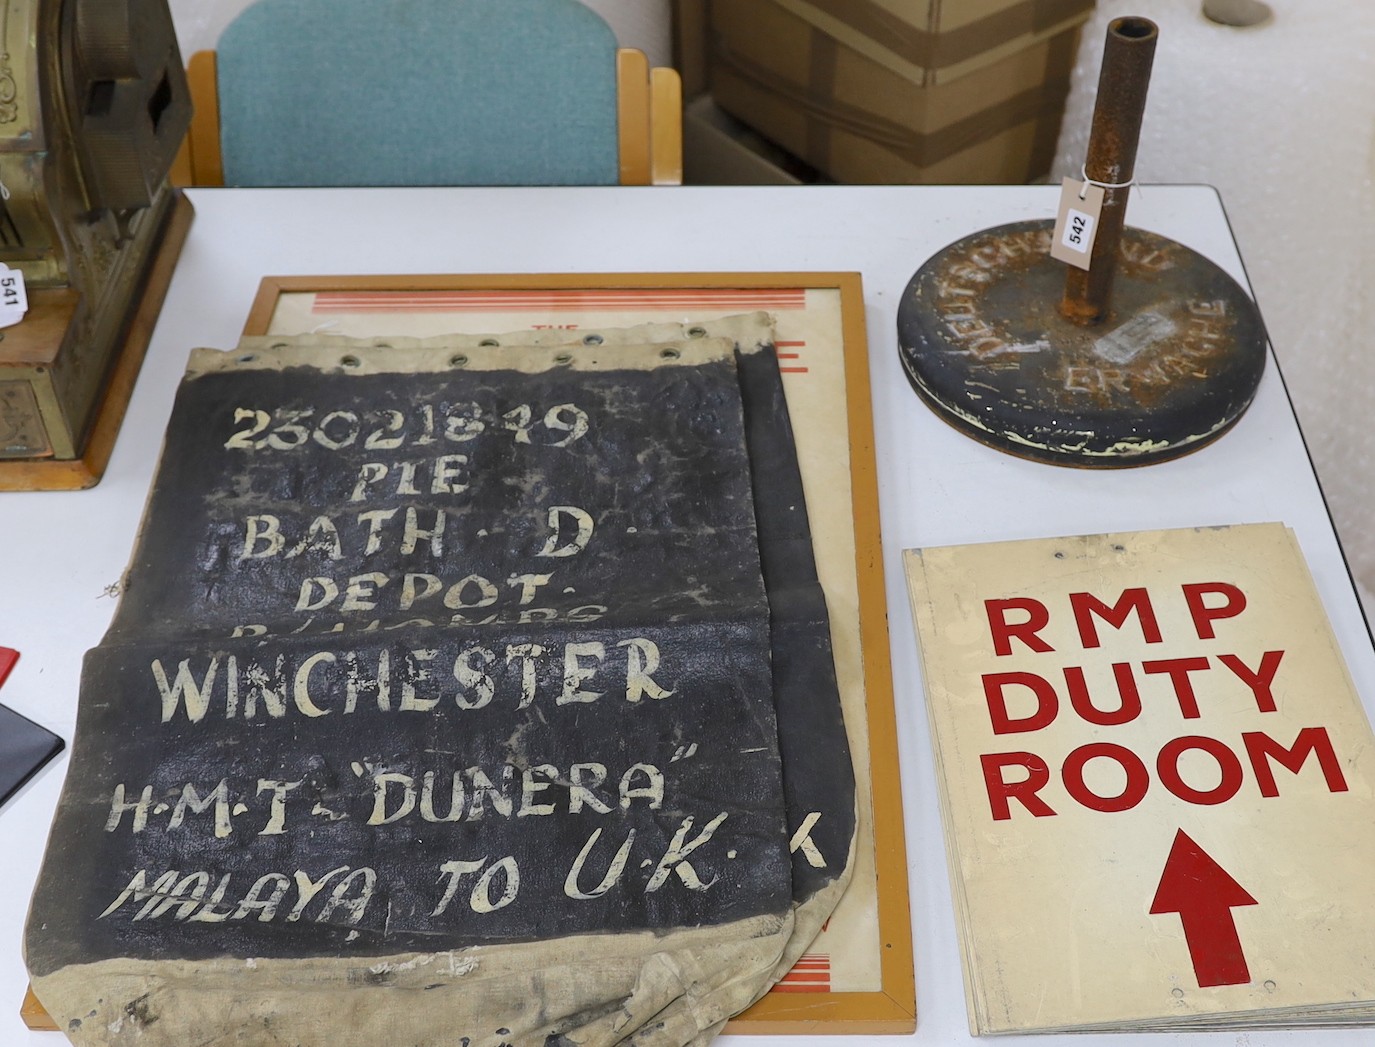 541
542
THE
E
23021849
PTE
BATH · D ·
DEPOT ·
WINCHESTER
H·M·T "DUNERA"
MALAYA TO U·K·
K
ERWACHE
RMP
DUTY
ROOM